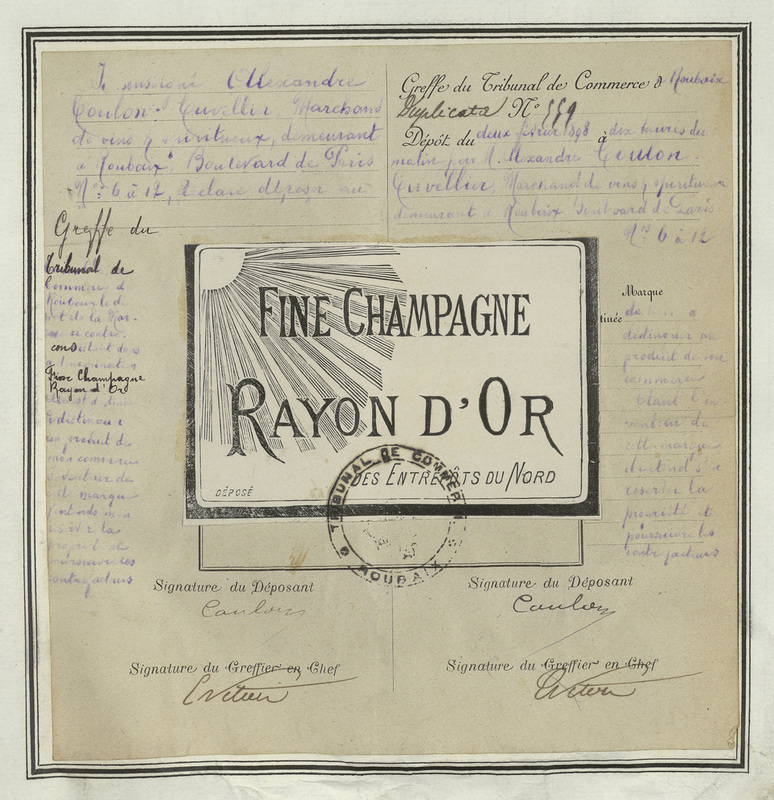 Je soussigné Alexandre
Coulon-Cuvellier, Marchand
de vins & spiritueux, demeurant
à Roubaix, Boulevard de Paris
Nos 6 à 12, déclare déposer au
Greffe du
Tribunal de
Commerce de
Roubaix le
de la Mar-
que ci contre
consistant dans
la dénomination
Fine Champagne
Rayon d'Or
distinguer
un produit de
mon commerce
marque
réserver la
propriété et
poursuivre les
contrefacteurs
Greffe du Tribunal de Commerce d Roubaix
Duplicata N° 559
Dépôt du deux février 1898 à dix heures du
matin par M. Alexandre Coulon-
Cuvellier, Marchand de vins & spiritueux
demeurant à Roubaix, Boulevard de Paris
Nos 6 à 12
Marque
tinée
distinguer un
produit de son
commerce
Etant l'in-
venteur de
cette marque
réserver la
propriété et
poursuivre les
contrefacteurs
FINE CHAMPAGNE
RAYON D'OR
DES ENTREPÔTS DU NORD
DÉPOSÉ
TRIBUNAL DE COMMERCE
ROUBAIX
Signature du Déposant
Coulon
Signature du Déposant
Coulon
Signature du Greffier en Chef
Signature du Greffier en Chef